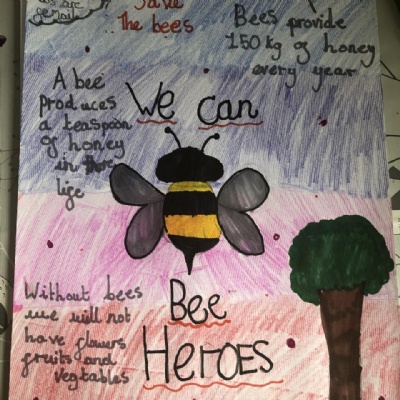 we are
Save
the bees
Bees provide
150 kg of honey
every year
A bee
produces
a teaspoon
of honey
in
life
We can
Bee
Heroes
Without bees
we will not
have flowers
fruits and
vegtables